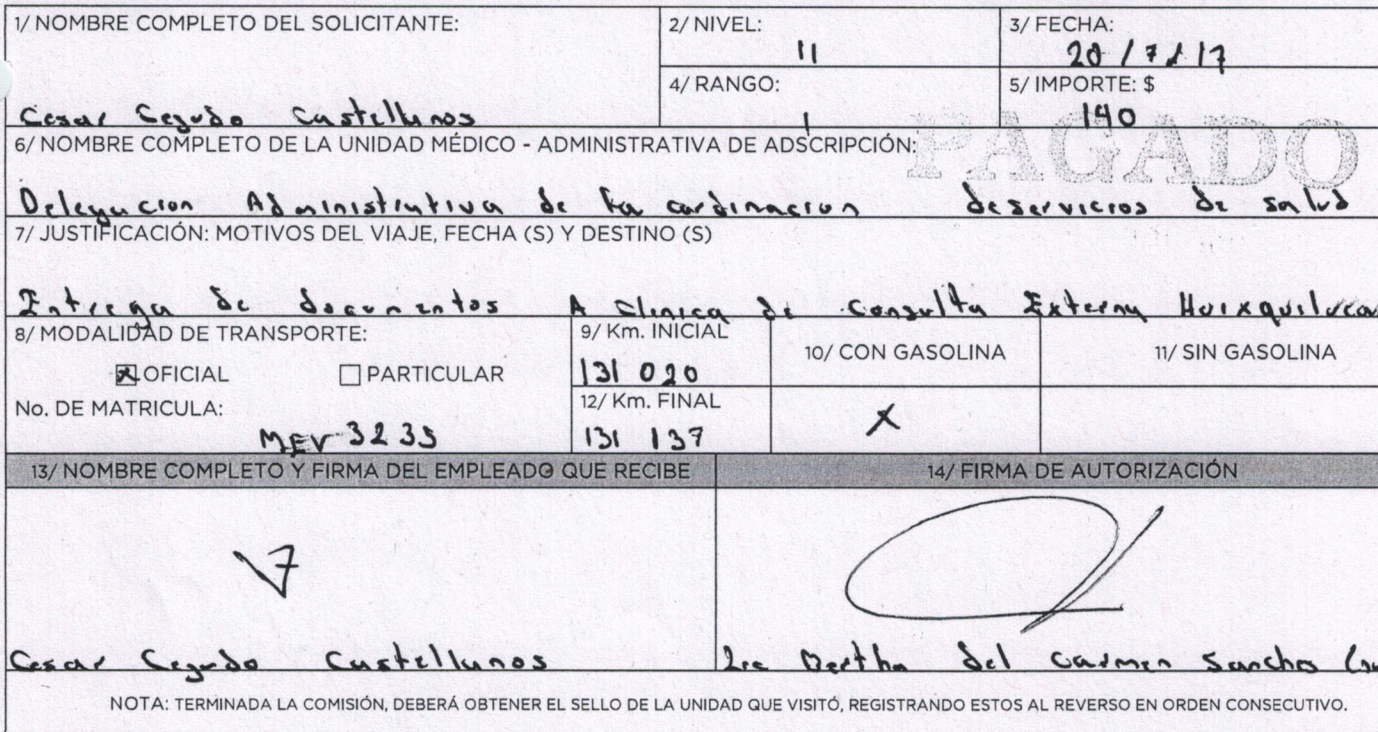 1/ NOMBRE COMPLETO DEL SOLICITANTE:
Cesar Cegudo Castellanos
2/ NIVEL:
11
3/ FECHA:
20 / 7 / 17
4/ RANGO:
1
5/ IMPORTE: $
140
PAGADO
6/ NOMBRE COMPLETO DE LA UNIDAD MÉDICO - ADMINISTRATIVA DE ADSCRIPCIÓN:
Delegacion Administrativa de la cordinacion de servicios de salud
7/ JUSTIFICACIÓN: MOTIVOS DEL VIAJE, FECHA (S) Y DESTINO (S)
Entrega de documentos A Clinica de Consulta Externa
8/ MODALIDAD DE TRANSPORTE:
X OFICIAL PARTICULAR
No. DE MATRICULA:
MEV 3235
9/ Km. INICIAL
131 020
12/ Km. FINAL
131 137
10/ CON GASOLINA
X
11/ SIN GASOLINA
13/ NOMBRE COMPLETO Y FIRMA DEL EMPLEADO QUE RECIBE
Cesar Cegudo Castellanos
14/ FIRMA DE AUTORIZACIÓN
del Carmen
NOTA: TERMINADA LA COMISIÓN, DEBERÁ OBTENER EL SELLO DE LA UNIDAD QUE VISITÓ, REGISTRANDO ESTOS AL REVERSO EN ORDEN CONSECUTIVO.